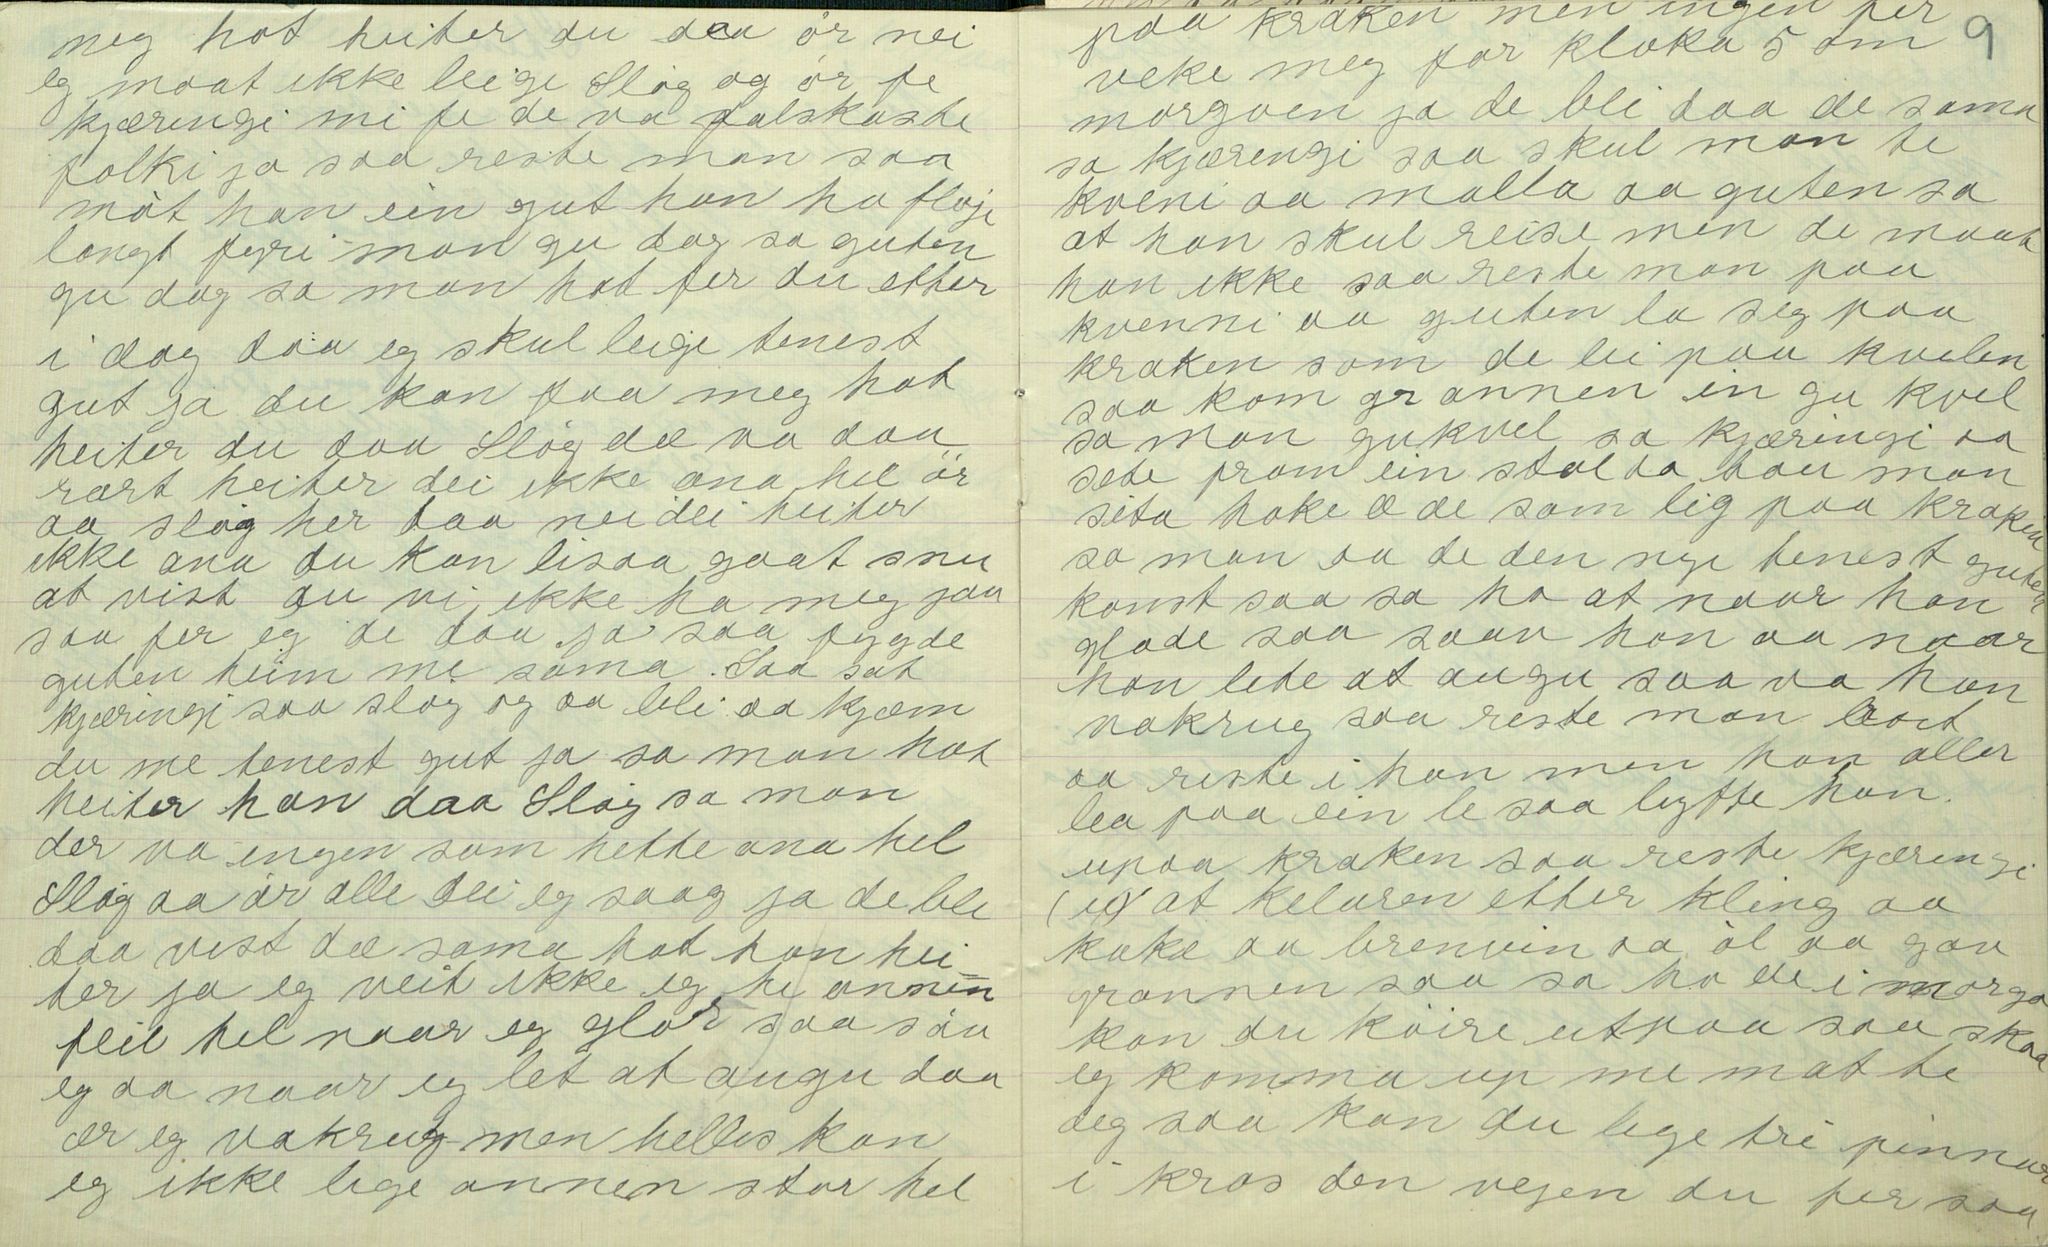 meg hot heiter du daa ör nei
eg maat ikke leige Slög og ör fe
kjæringi mi fe de va falskaste
folki ja saa reste man saa
möt han ein gut han ha fløje
langt fyri man gu dag sa guten
gu dag sa man hot fer du etter
i dag daa eg skul leige tenest
gut ja du kan faa meg hot
heiter du daa Slög dæ va daa
rært heiter dei ikke ana hel ör
aa slög her daa nei dei heiter
ikke ana du kan lisaa gaat snu
at vist du vi ikke ha meg jaa
saa fer eg de daa ja saa fygde
guten heim me sama. Saa sat
kjæringi saa slog og aa bli aa kjæm
du me tenest gut ja sa man hot
heiter han daa Slög sa man
der va ingen som hette ana hel
Slög aa ör alle dei eg saag ja de ble
daa vist dæ sama hot han hei=
ter ja eg veit ikke eg he annen
feil hel naar eg glor saa söv
eg aa naar eg let at augu daa
ær eg vakrug men helles kan
eg ikke lege annen stor hel
paa kraken men ingen fer 9
veke meg for kloka 5 om
morgoen ja de bli daa de sama
sa kjærengi saa skul man te
kveni aa malla aa guten sa
at han skul reise men de maat
han ikke saa reste man paa
kvenni aa guten la seg paa
kraken som de lei paa kvelen
saa kom grannen in gu kvel
sa man gukvel sa kjæringi aa
sete fram ein stol aa bau man
sita hoke æ de som lig paa kraken
sa man aa de den nye tenest guten
konst saa sa ho at naar han
glode saa saav han aa naar
han lete at augu saa va han
vakrug saa reste man bort
aa reste i han men han aller
lea paa ein le saa lyfte han
upaa kraken saa reste kjærengi
(u) at keluren etter kling aa
kake aa brenvin aa öl aa gav
grannen saa sa ho de i morgo
kan du köire utpaa saa skaa
eg komma up me mat te
deg saa kan du lege tri pinnar
i kros den vejen du fer saa